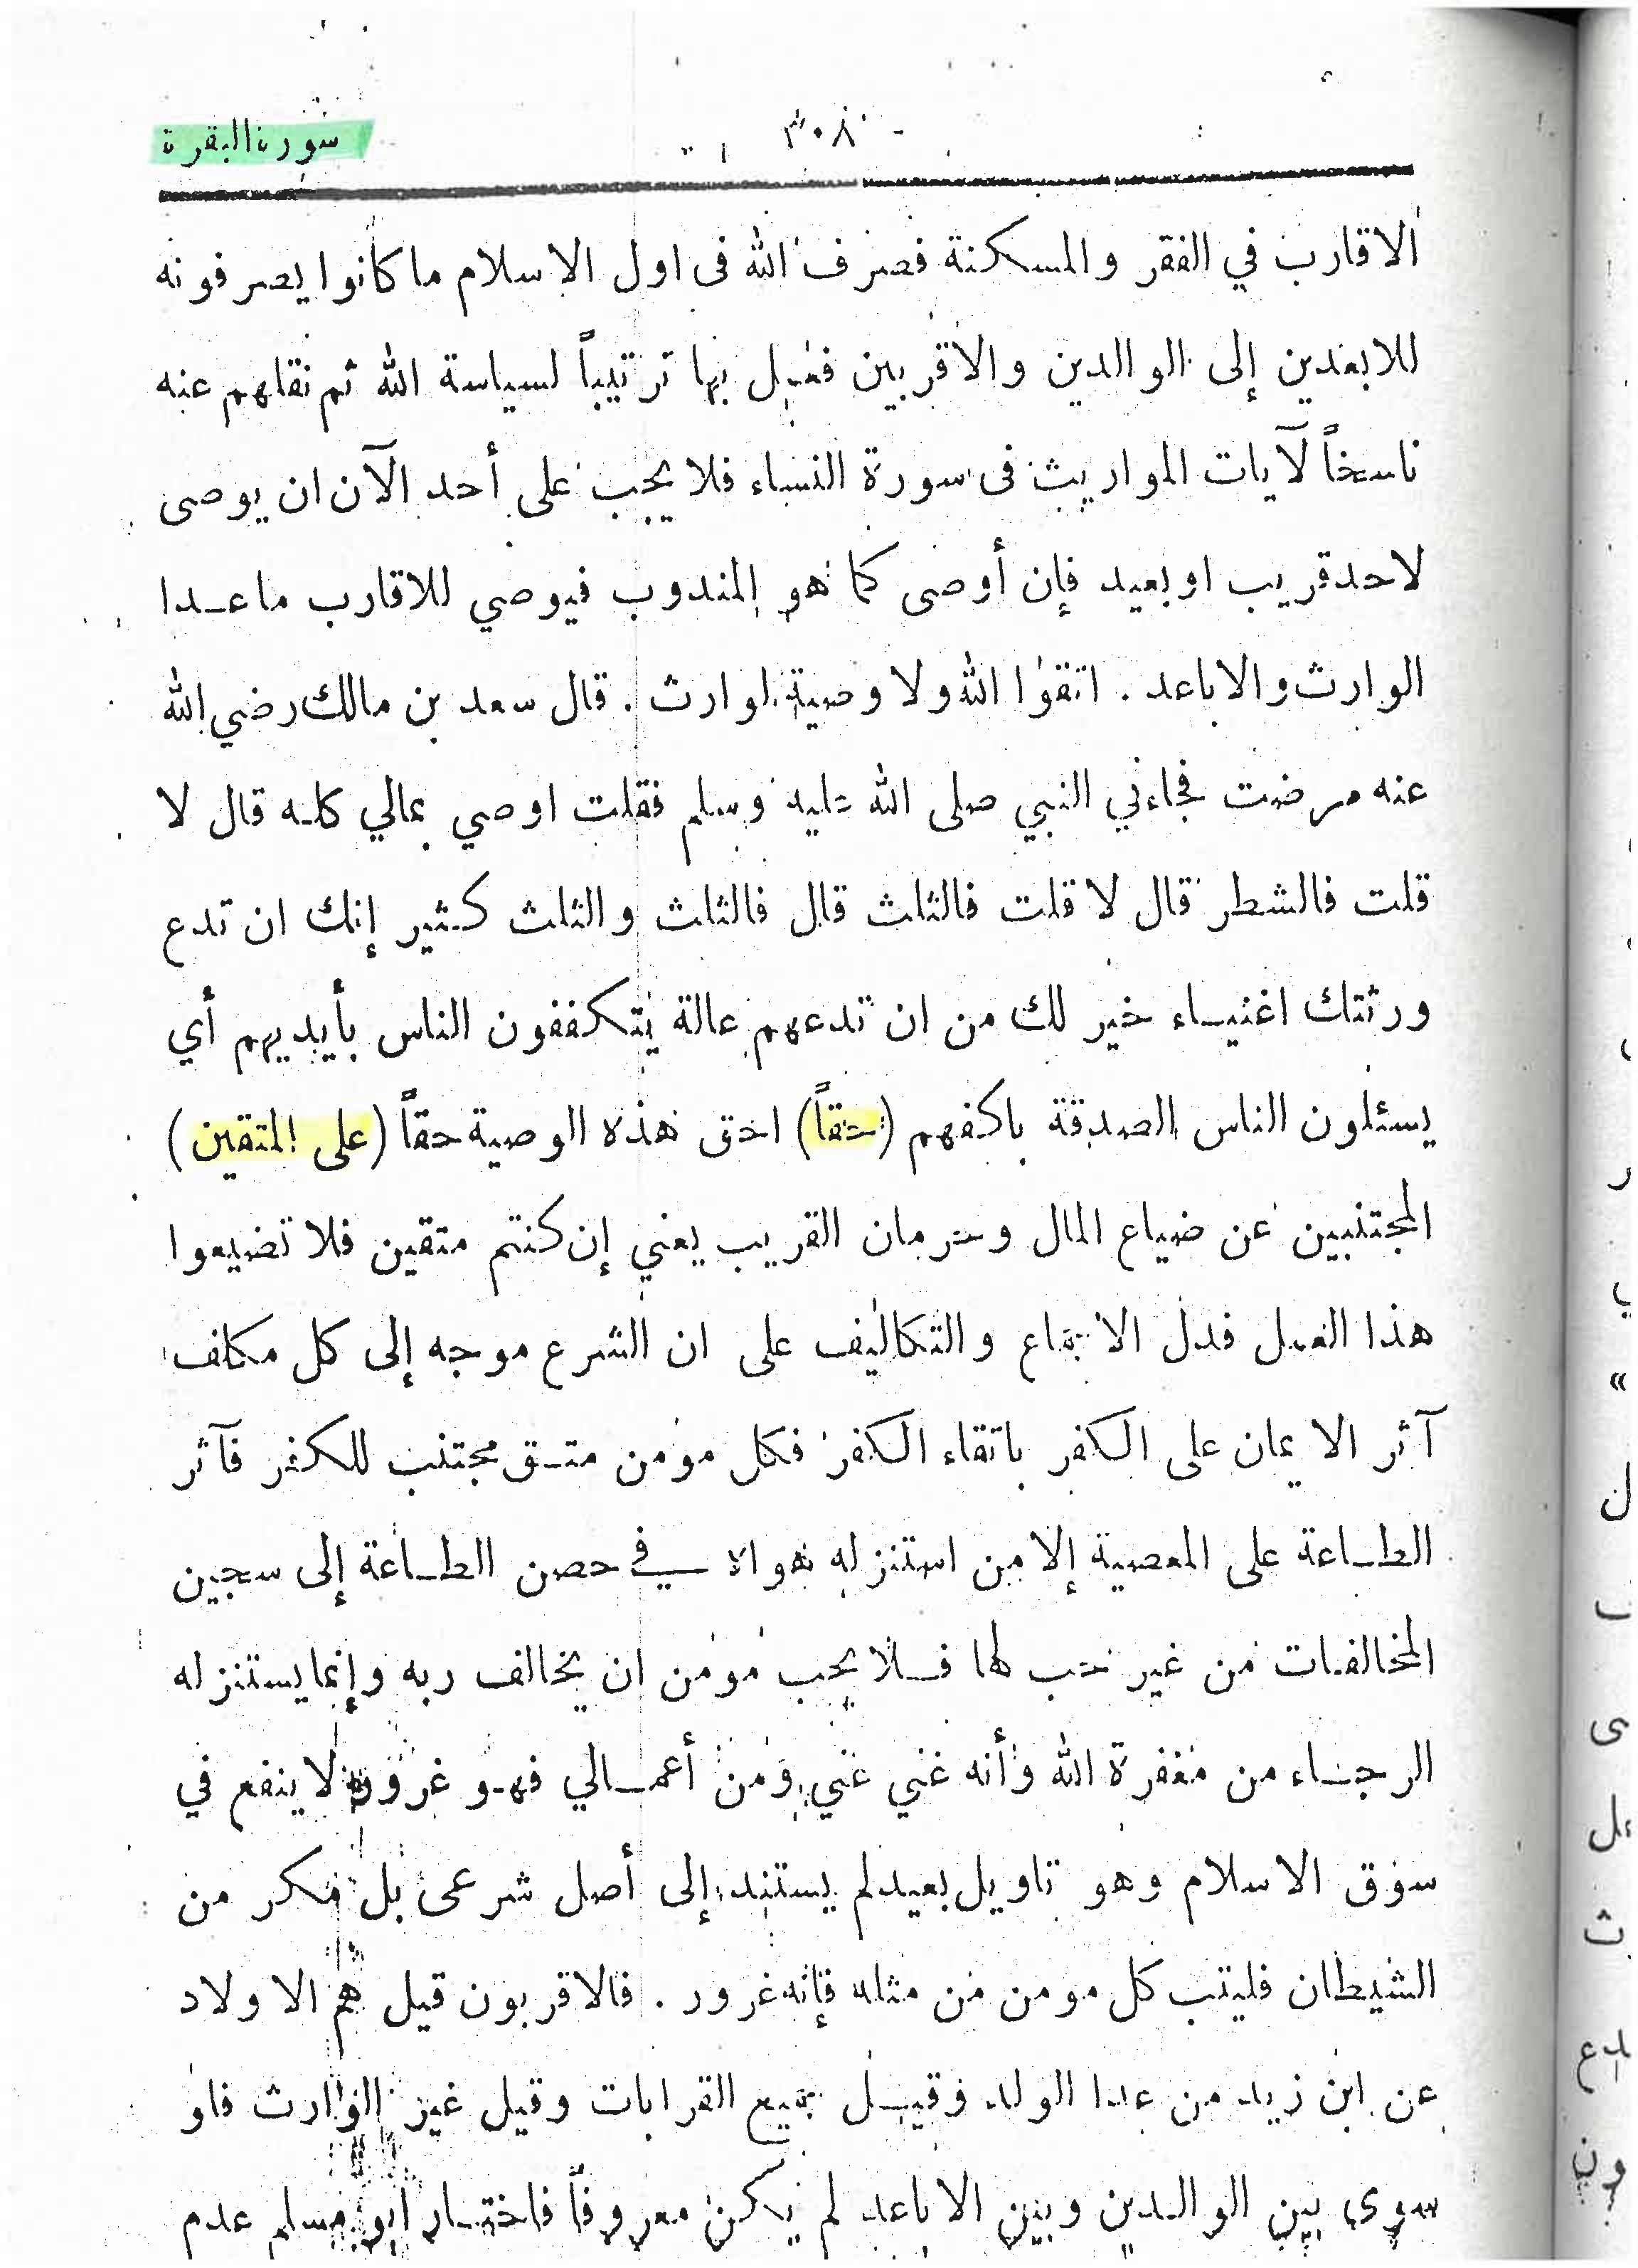 ٣٠٨
سورة البقرة
الاقارب في الفقر والمسكنة فصرف الله فى اول الاسلام ما كانوا يصرفونه
للابعدين إلى الوالدين والاقربين فعمل بها ترتيباً لسياسة الله ثم نقلهم عنه
ناسخاً لآيات المواريث فى سورة النساء فلا يجب على أحد الآن ان يوصى
لاحد قريب او بعيد فإن أوصى كما هو المندوب فيوصي للاقارب ما عدا
الوارث والاباعد . اتقوا الله ولا وصية لوارث . قال سعد بن مالك رضي الله
عنه مرضت فجاءني النبي صلى الله عليه وسلم فقلت اوصي بمالي كله قال لا
قلت فالشطر قال لا قلت فالثلث قال فالثلث والثلث كثير إنك ان تدع
ورثتك اغنياء خير لك من ان تدعهم عالة يتكففون الناس بأيديهم أي
يسئلون الناس الصدقة باكفهم (حقاً) احق هذه الوصية حقاً (على المتقين)
المجتنبين عن ضياع المال وحرمان القريب يعني إن كنتم متقين فلا تضيعوا
هذا العمل فدل الاجماع والتكاليف على ان الشرع موجه إلى كل مكلف
آثر الايمان على الكفر باتقاء الكفر فكل مومن متق مجتنب للكفر فآثر
الطاعة على المعصية إلا من استنزله هواه في حصن الطاعة إلى سجين
المخالفات من غير حب لها فلا يحب مومن ان يخالف ربه وإنما يستنزله
الرجاء من مغفرة الله وأنه غني عني ومن أعمالي فهو غرور لا ينفع في
سوق الاسلام وهو تاويل بعيد لم يستند إلى أصل شرعى بل مكر من
الشيطان فليتب كل مومن من مثله فإنه غرور . فالاقربون قيل هم الاولاد
عن ابن زيد من عدا الولد وقيل جميع القرابات وقيل غير الوارث فاو
سوى بين الوالدين وبين الاباعد لم يكن معروفاً فاختار ابو مسلم عدم